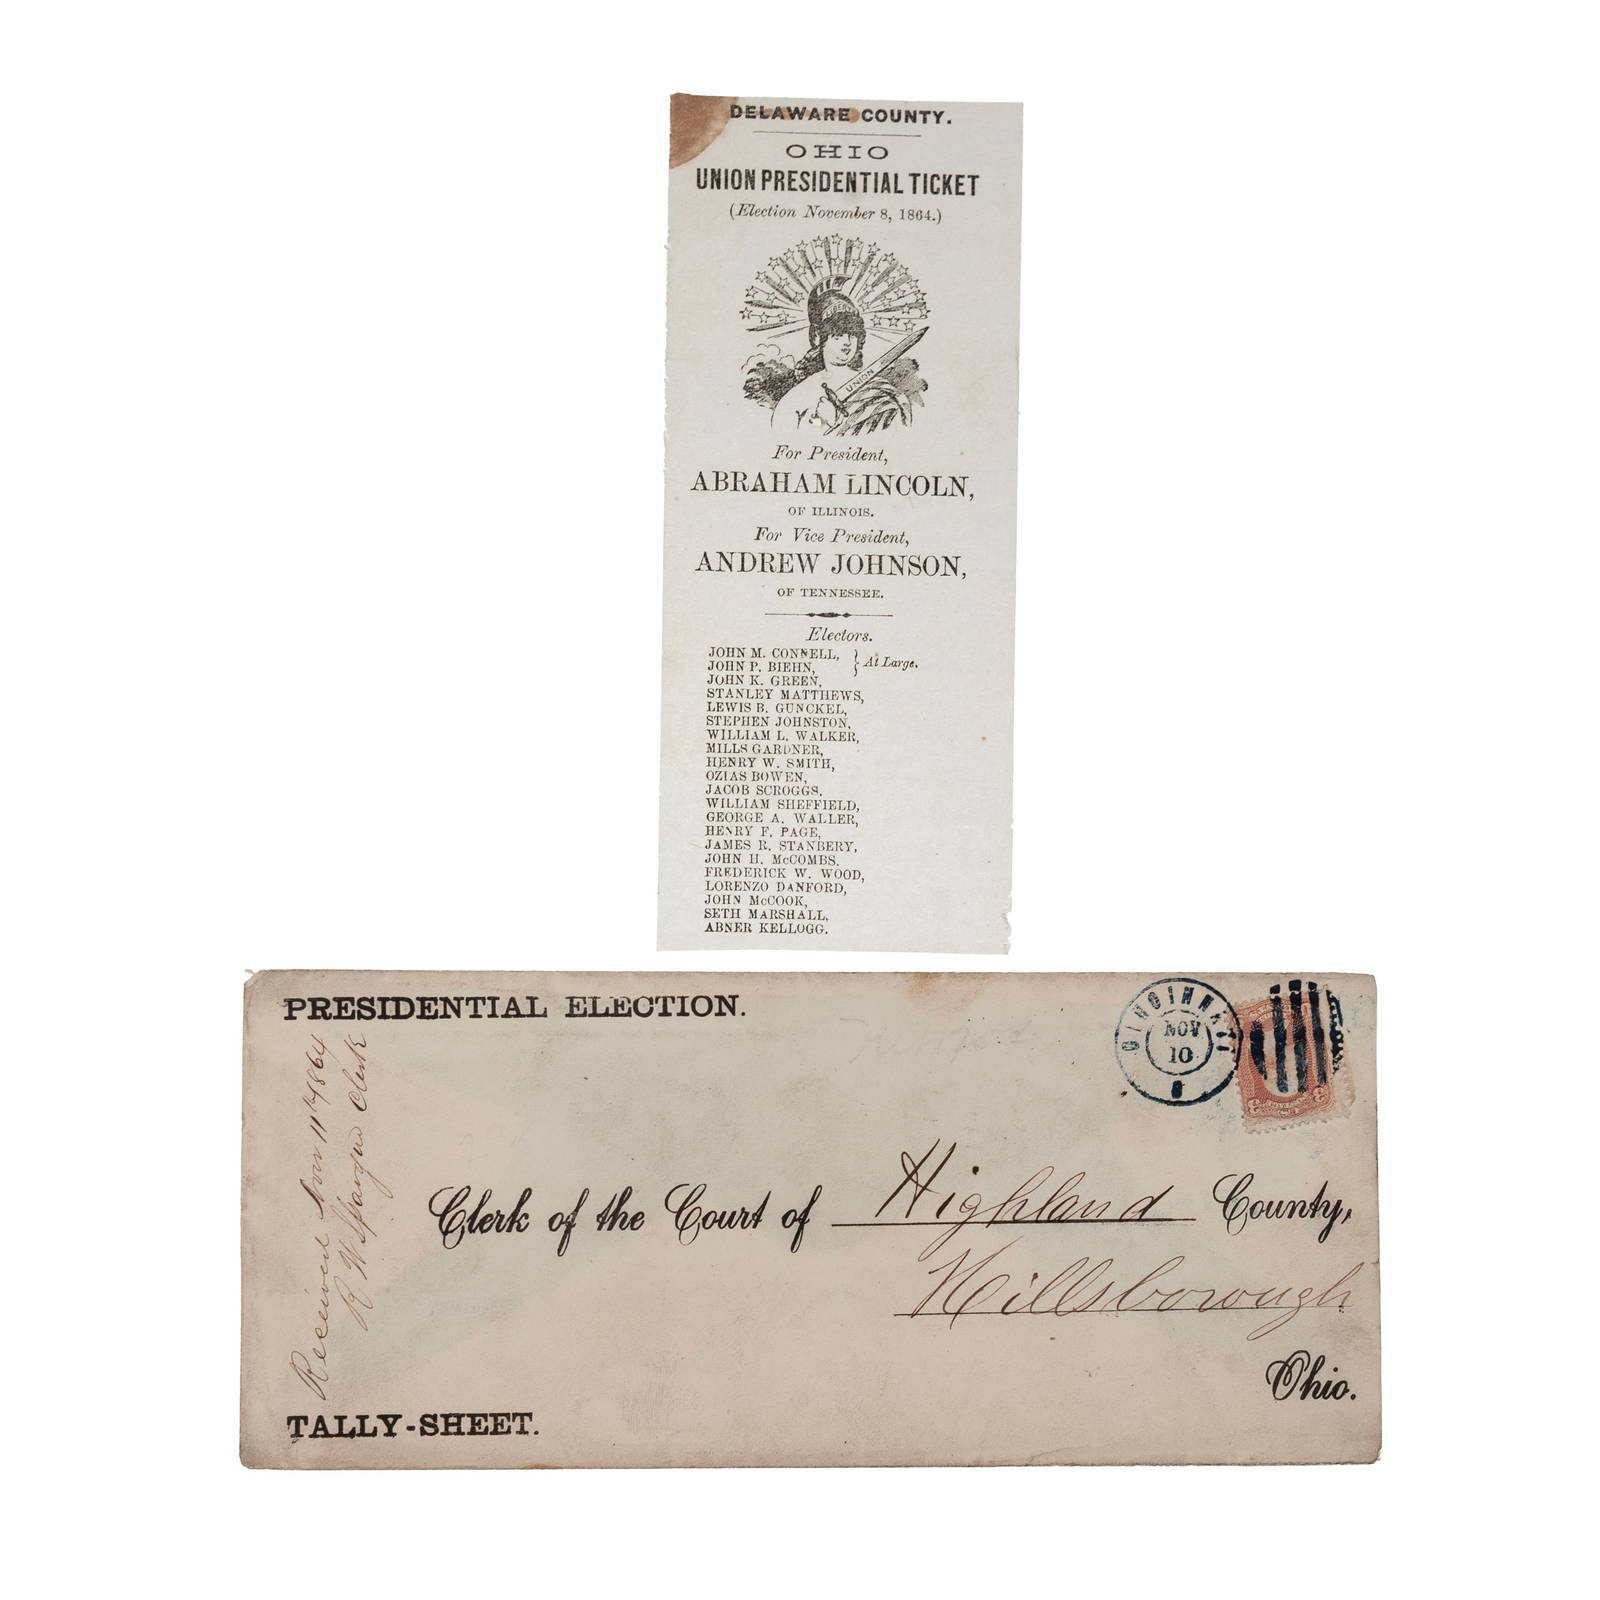 DELAWARE COUNTY.
OHIO
UNION PRESIDENTIAL TICKET
(Election November 8, 1864.)
LIBERTY
UNION
For President,
ABRAHAM LINCOLN,
OF ILLINOIS.
For Vice President,
ANDREW JOHNSON,
OF TENNESSEE.
Electors.
JOHN M. CONNELL,
JOHN P. BIEHN, } At Large.
JOHN K. GREEN,
STANLEY MATTHEWS,
LEWIS B. GUNCKEL,
STEPHEN JOHNSTON,
WILLIAM L. WALKER,
MILLS GARDNER,
HENRY W. SMITH,
OZIAS BOWEN,
JACOB SCROGGS,
WILLIAM SHEFFIELD,
GEORGE A. WALLER,
HENRY F. PAGE,
JAMES R. STANBERY,
JOHN H. McCOMBS.
FREDERICK W. WOOD,
LORENZO DANFORD,
JOHN McCOOK,
SETH MARSHALL,
ABNER KELLOGG.
PRESIDENTIAL ELECTION.
CINCINNATI
NOV
10
Received Nov 11th 1864
R W Clerk
Clerk of the Court of Highland County,
Hillsborough
Ohio.
TALLY-SHEET.